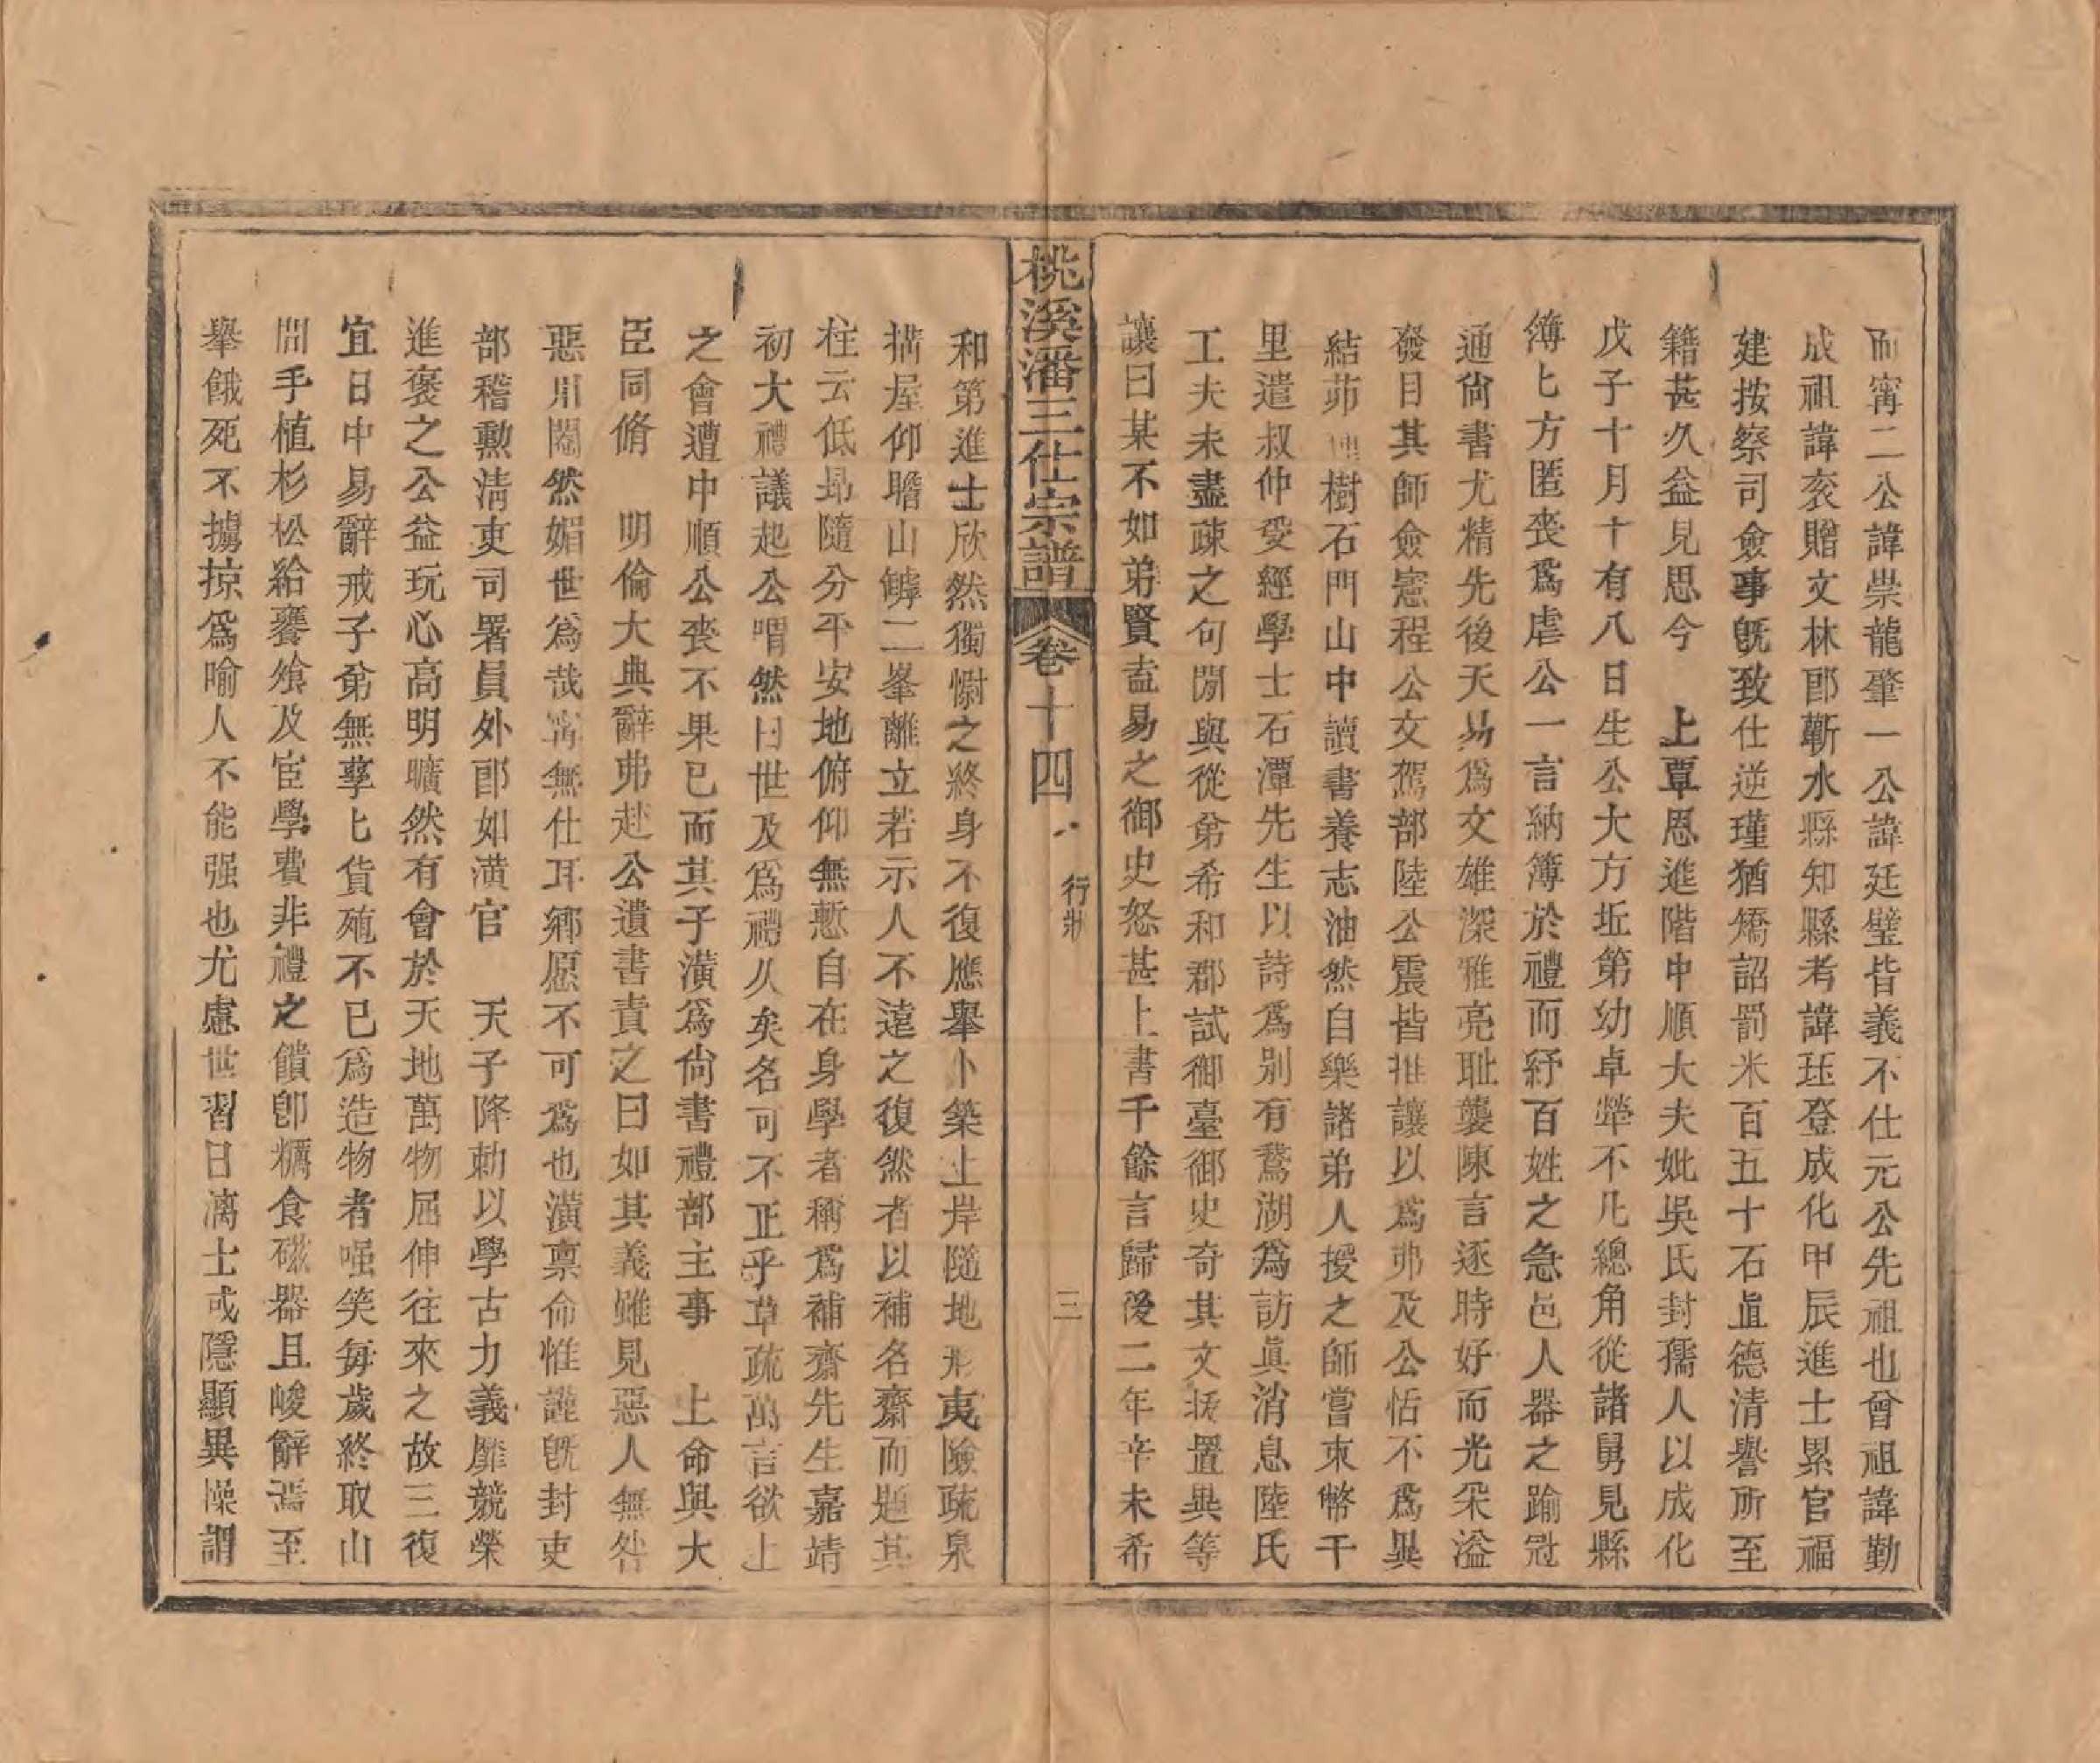 而甯二公諱崇龍肇一公諱廷璧皆義不仕元公先祖也曾祖諱勤
成祖諱衮贈文林郎蘄水縣知縣考諱珏登成化甲辰進士累官福
建按察司僉事旣致仕逆瑾猶矯詔罰米百五十石直德清譽所至
籍甚久益見思今　上覃恩進階中順大夫妣吳氏封孺人以成化
戊子十月十有八日生公大方坵第幼卓犖不凡總角從諸舅見縣
簿匕方匿喪爲虐公一言納簿於禮而紓百姓之急邑人器之踰冠
通尙書尤精先後天易爲文雄深雅亮耻襲陳言逐時好而光采溢
發目其師僉憲程公文駕部陸公震皆推讓以爲弗及公恬不爲異
結茆樹石門山中讀書養志油然自樂諸弟人授之師嘗束幣千
里遣叔仲受經學士石潭先生以詩爲別有鵞湖爲訪眞消息陸氏
工夫未盡疎之句閒與從弟希和郡試御臺御史奇其文拔置異等
讓曰某不如弟賢盍易之御史怒甚上書千餘言歸後二年辛未希
桃溪潘三仕宗譜　卷十四　行狀　三
和第進士欣然獨慰之終身不復應舉卜築上岸隨地形夷險疏泉
搆屋仰瞻山罅二峯離立若示人不遠之復然者以補名齋而題其
柱云低昻隨分平安地俯仰無慙自在身學者稱爲補齋先生嘉靖
初大禮議起公喟然曰世及爲禮久矣名可不正乎草疏萬言欲上
之會遭中順公喪不果已而其子潢爲尙書禮部主事　上命與大
臣同脩　明倫大典辭弗赴公遺書責之曰如其義雖見惡人無咎
惡用閹然媚世爲哉甯無仕耳鄉愿不可爲也潢禀命惟謹旣封吏
部稽勳清吏司署員外郎如潢官　天子降勅以學古力義靡競榮
進褒之公益玩心高明曠然有會於天地萬物屈伸往來之故三復
宜日中易辭戒子弟無孳匕貨殖不已爲造物者嗢笑每歲終取山
間手植杉松給饔飧及宦學費非禮之饋卽糲食磁器且峻辭焉至
舉餓死不擄掠爲喻人不能强也尤慮世習日漓士或隱顯異操謂